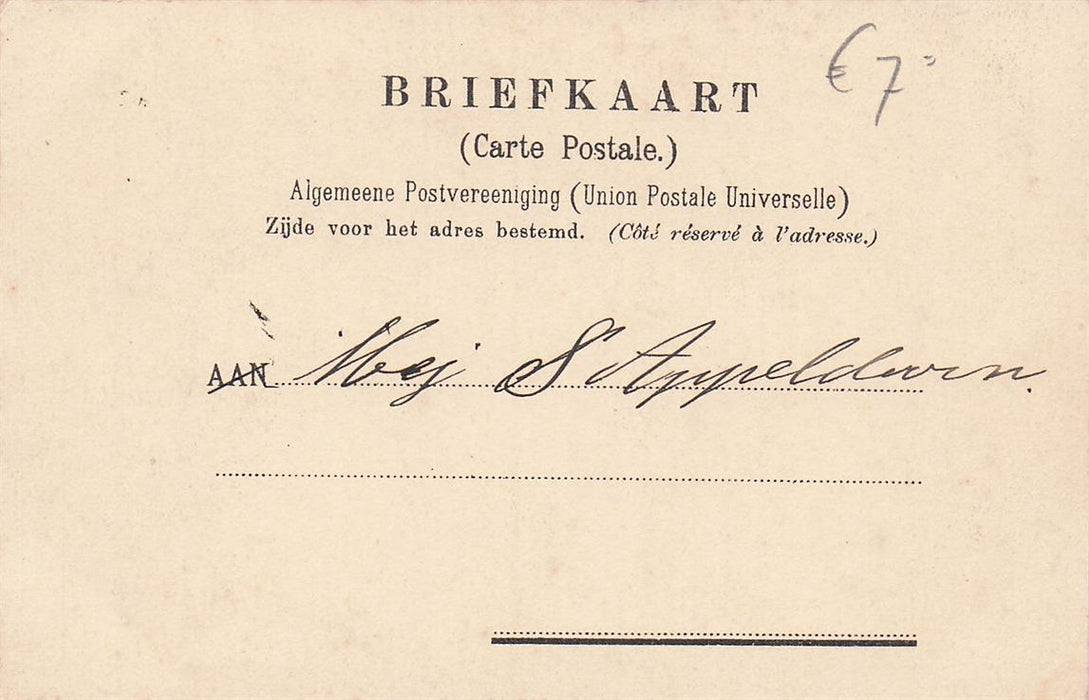 € 7=
BRIEFKAART
(Carte Postale.)
Algemeene Postvereeniging (Union Postale Universelle)
Zijde voor het adres bestemd. (Côté réservé à l'adresse.)
AAN Mej S Appeldoorn.